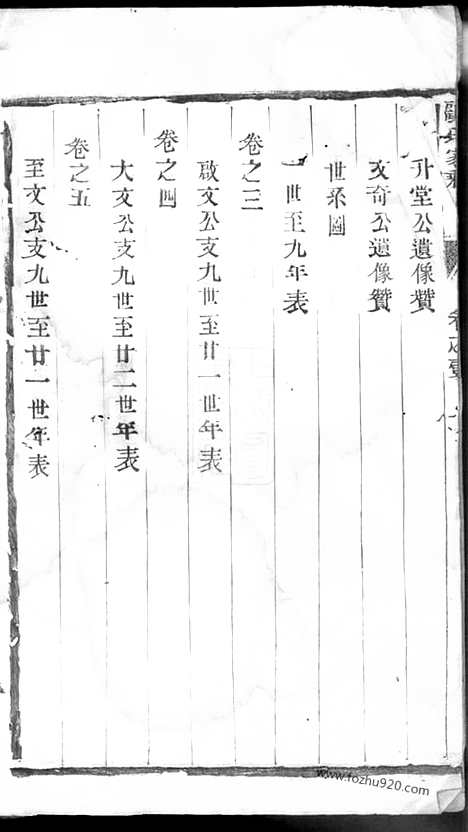 升堂公遺像贊
文奇公遺像贊
世系圖
一世至九年表
卷之三
啟文公支九世至廿一世年表
卷之四
大文公支九世至廿二世年表
卷之五
至文公支九世至廿一世年表
www.fozhu920.com